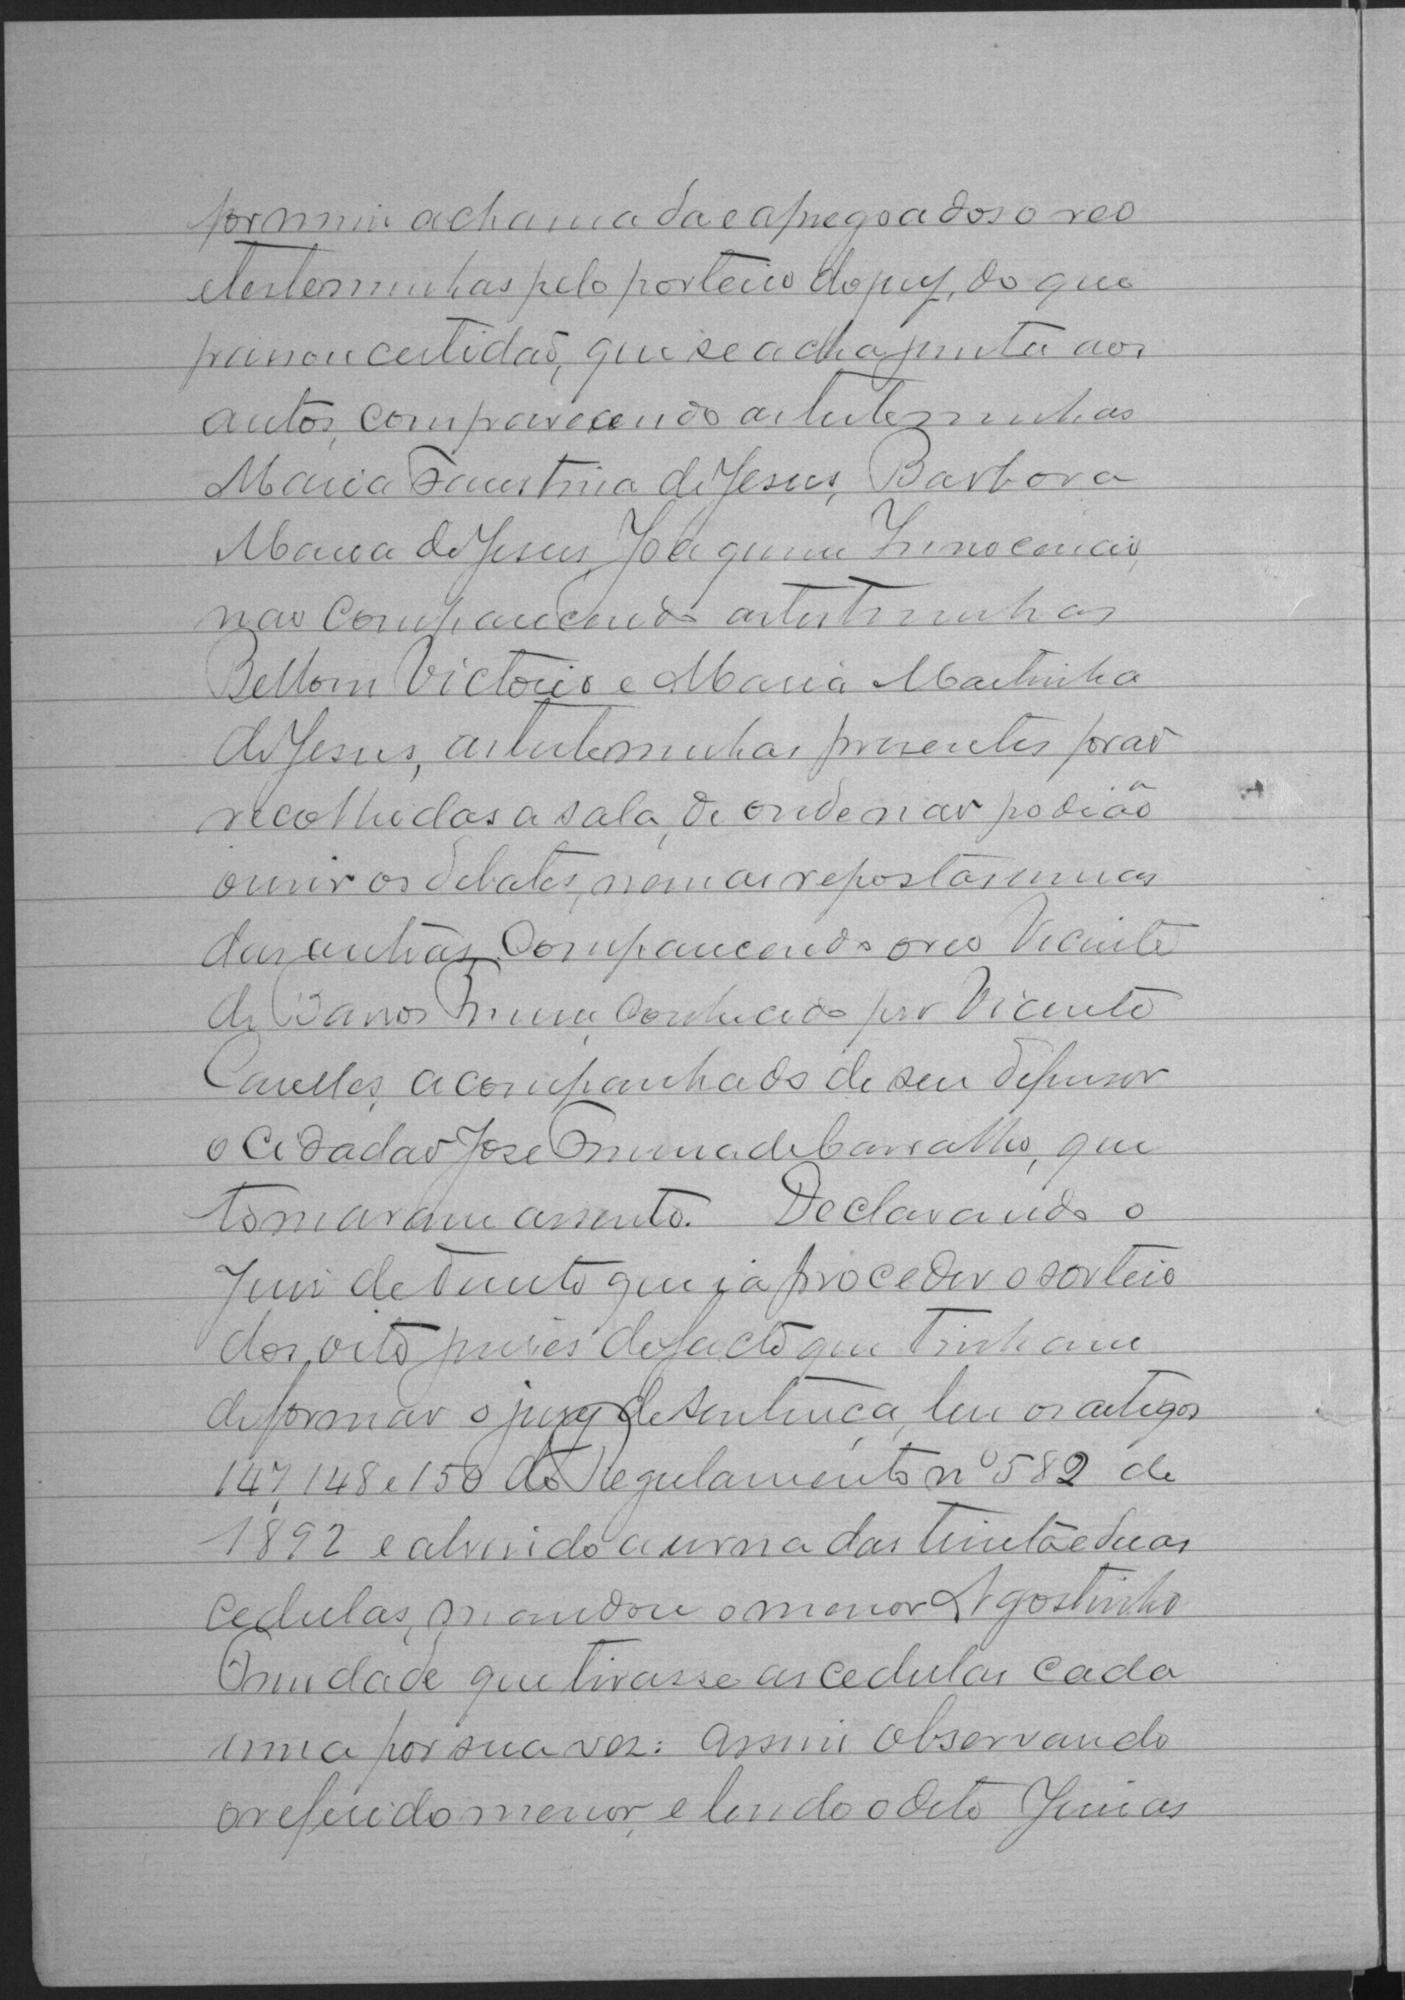 por mim a chamada e apregoados o reo
e testeminhas pelo porteiro do jury, do que
passou certidaõ, que se acha junta aos
autos, comparecendo as testeminhas
Maria Faustina de Jesus, Barbora
Maria de Jesus, Joaquim Innocencio,
nao comparecendo as testeminhas
Bellom Victorio e Maria Martinha
de Jesus, as testeminhas presentes forao
recolhidas a sala, de onde nao podião
ouvir os debates, nem as repostas umas
das outras. Comparecendo o reo Vicente
de Barros, conhecido por Vicente
acompanhado de seu defensor
o Cidadao José de Carvalho, que
tomaram assento. Declarando o
Juiz de Direito que ia proceder o sorteio
dos oito juizes de facto que tinham
de formar o jury de sentença, leu os artigos
147, 148 e 150 do Regulamento nº 582 de
1892 e abrindo a urna das trinta e duas
cedulas, mandou o menor Agostinho
Trindade que tirasse as cedulas cada
uma por sua vez: assim observando
o referido menor, e lendo o dito Juiz as